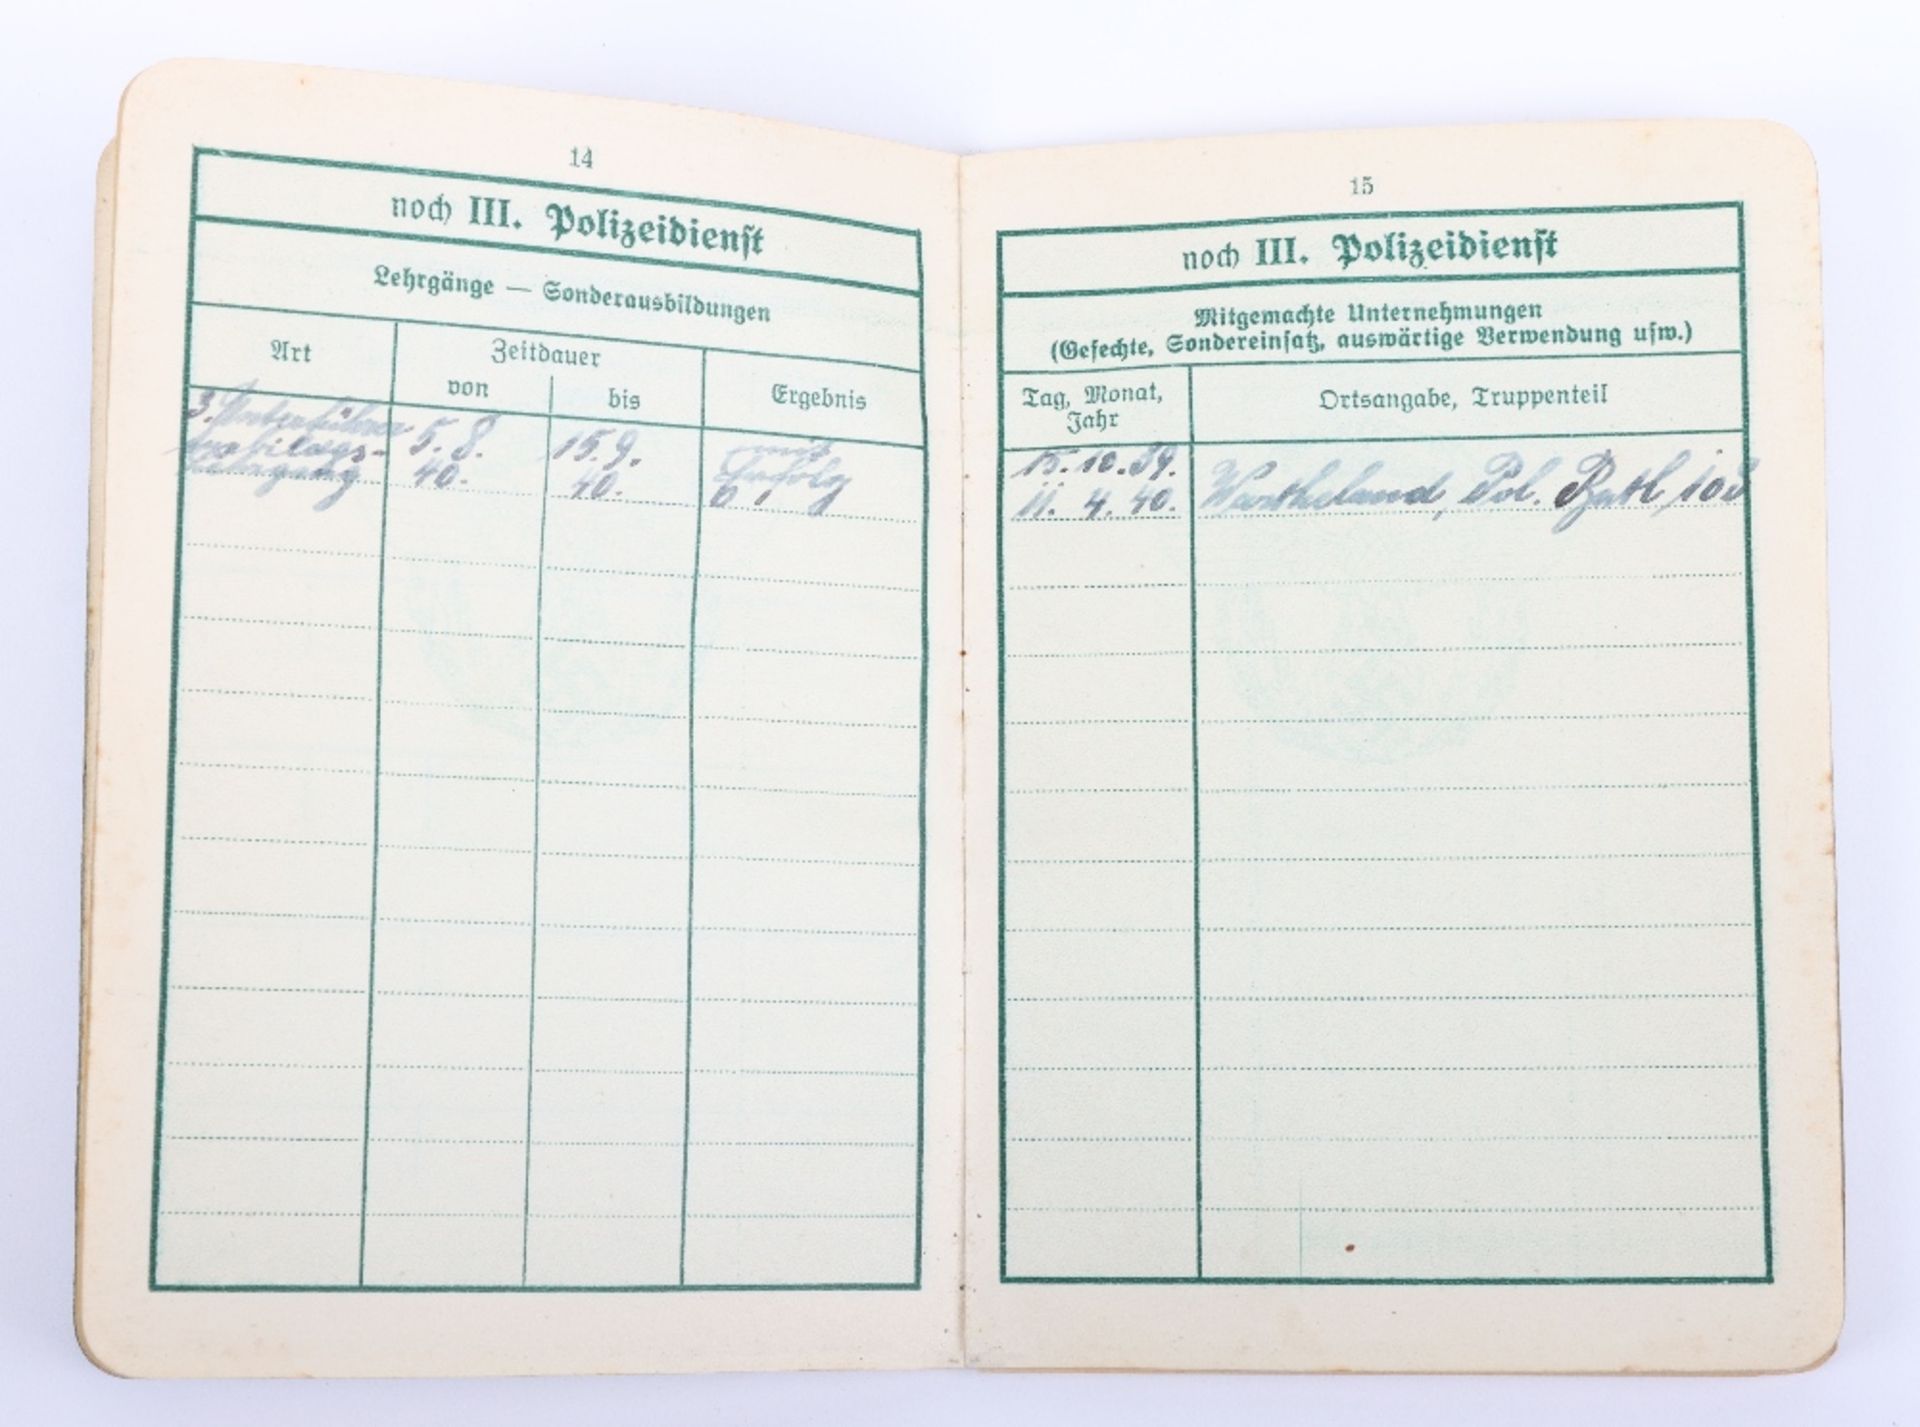 14
noch III. Polizeidienst
Lehrgänge — Sonderausbildungen
Art
Zeitdauer
von
bis
Ergebnis
3. Unterführer
5. 8.
15. 9.
mit
40.
40.
Erfolg
lehrgang
15
noch III. Polizeidienst
Mitgemachte Unternehmungen
(Gefechte, Sondereinsatz, auswärtige Verwendung usw.)
Tag, Monat,
Jahr
Ortsangabe, Truppenteil
15. 10. 39.
11. 4. 40.
Wartheland, Pol. Batl.